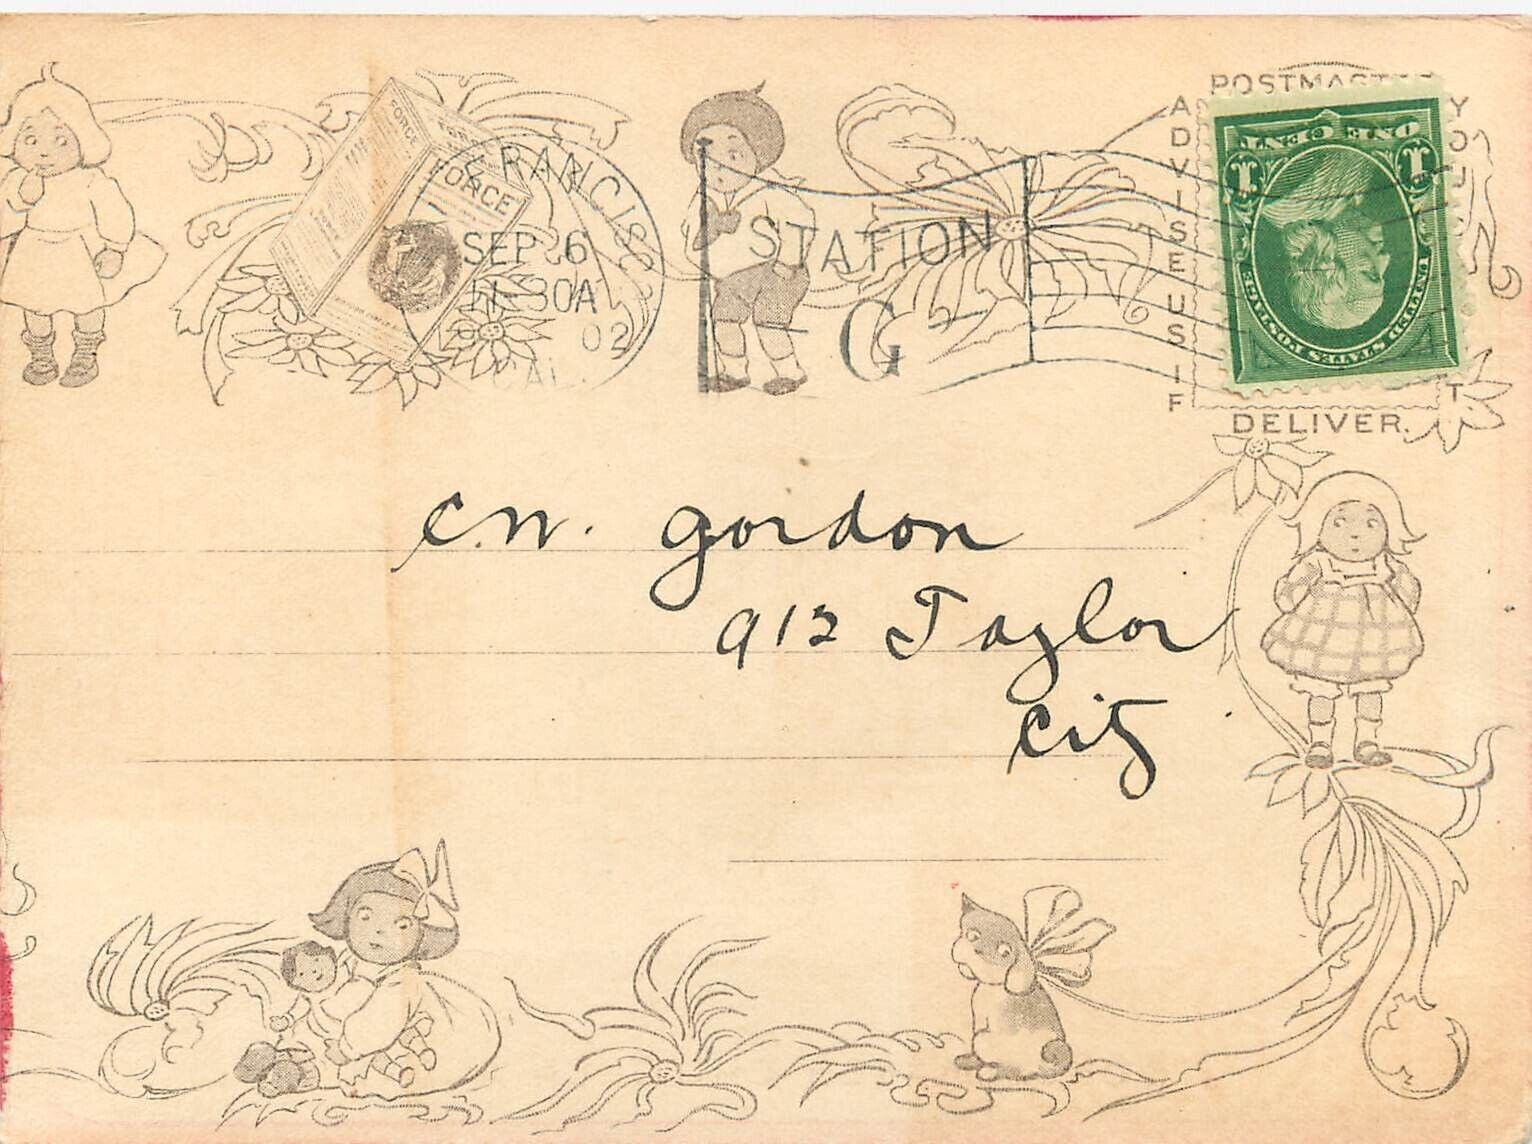 POSTMASTER
ADVISE US IF
DELIVER.
FORCE
FORCE
FORCE
FRANCISCO
SEP 6
11-30A
02
CAL.
STATION
G
ONE CENT
1 1
UNITED STATES POSTAGE
C.W. Gordon
912 Taylor
City